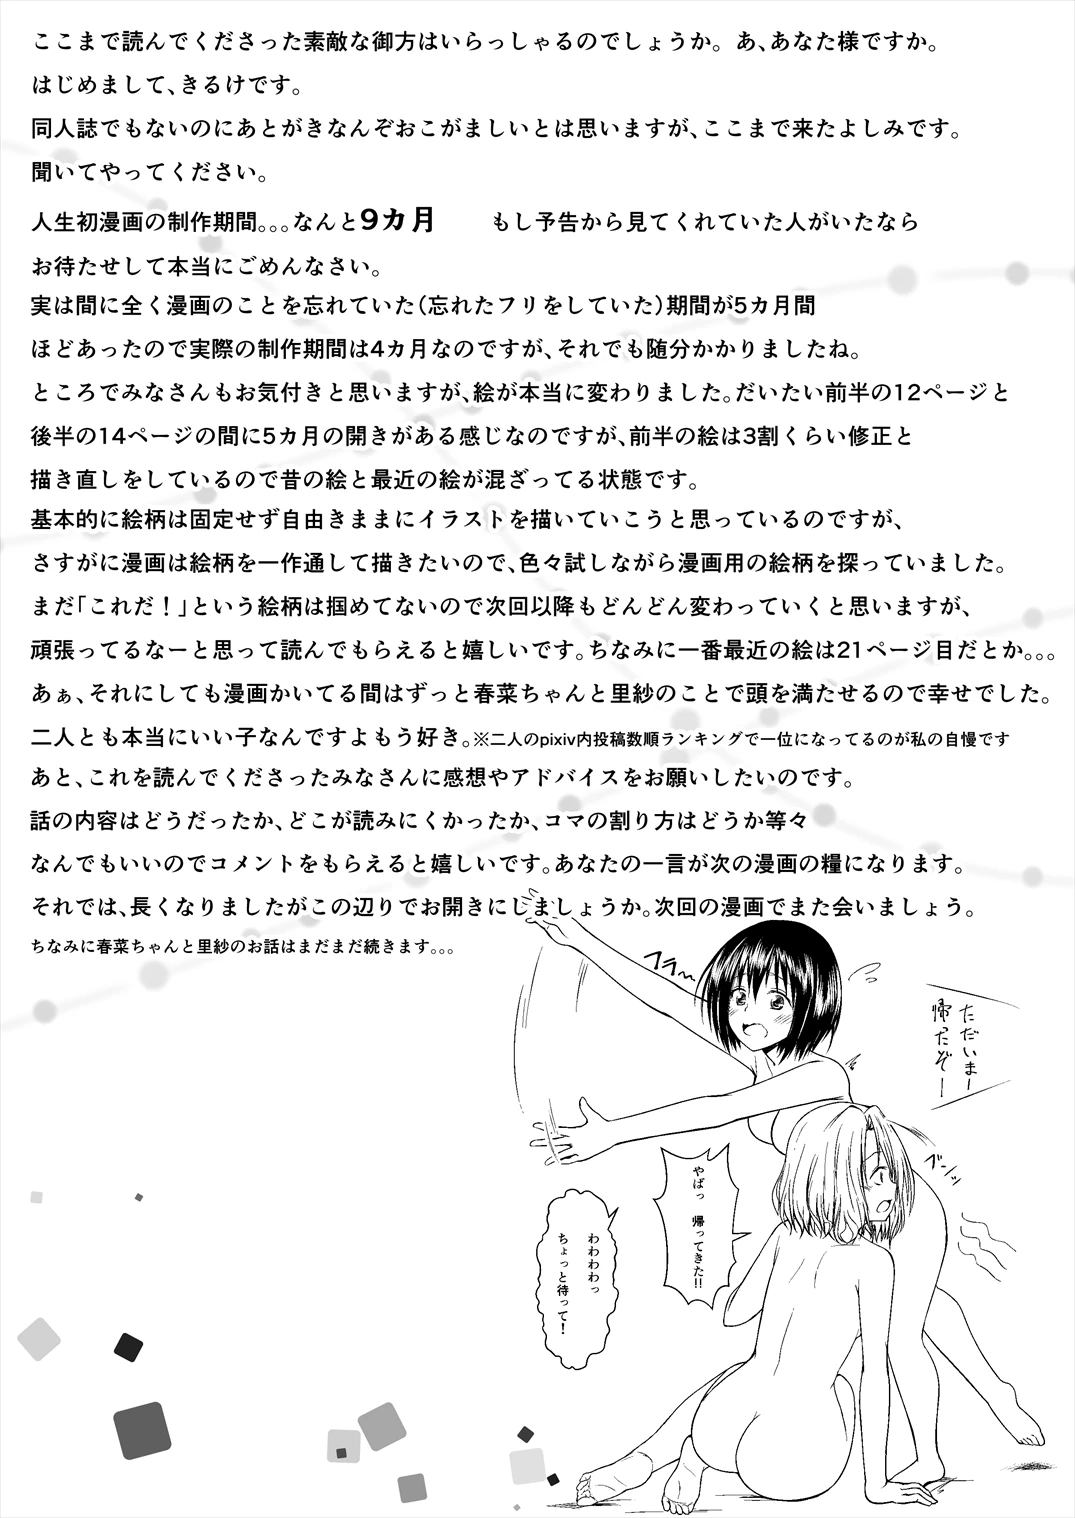 ここまで読んでくださった素敵な御方はいらっしゃるのでしょうか。あ、あなた様ですか。
はじめまして、きるけです。
同人誌でもないのにあとがきなんぞおこがましいとは思いますが、ここまで来たよしみです。
聞いてやってください。
人生初漫画の制作期間。。。なんと9カ月　　もし予告から見てくれていた人がいたなら
お待たせして本当にごめんなさい。
実は間に全く漫画のことを忘れていた（忘れたフリをしていた）期間が5カ月間
ほどあったので実際の制作期間は4カ月なのですが、それでも随分かかりましたね。
ところでみなさんもお気付きと思いますが、絵が本当に変わりました。だいたい前半の12ページと
後半の14ページの間に5カ月の開きがある感じなのですが、前半の絵は3割くらい修正と
描き直しをしているので昔の絵と最近の絵が混ざってる状態です。
基本的に絵柄は固定せず自由きままにイラストを描いていこうと思っているのですが、
さすがに漫画は絵柄を一作通して描きたいので、色々試しながら漫画用の絵柄を探っていました。
まだ「これだ！」という絵柄は掴めてないので次回以降もどんどん変わっていくと思いますが、
頑張ってるなーと思って読んでもらえると嬉しいです。ちなみに一番最近の絵は21ページ目だとか。。。
あぁ、それにしても漫画かいてる間はずっと春菜ちゃんと里紗のことで頭を満たせるので幸せでした。
二人とも本当にいい子なんですよもう好き。※二人のpixiv内投稿数順ランキングで一位になってるのが私の自慢です
あと、これを読んでくださったみなさんに感想やアドバイスをお願いしたいのです。
話の内容はどうだったか、どこが読みにくかったか、コマの割り方はどうか等々
なんでもいいのでコメントをもらえると嬉しいです。あなたの一言が次の漫画の糧になります。
それでは、長くなりましたがこの辺りでお開きにしましょうか。次回の漫画でまた会いましょう。
ちなみに春菜ちゃんと里紗のお話はまだまだ続きます。。。
フラ～
ただいまー
帰ったぞー
ブンッ
やばっ　帰ってきた!!
わわわわっ
ちょっと待って！